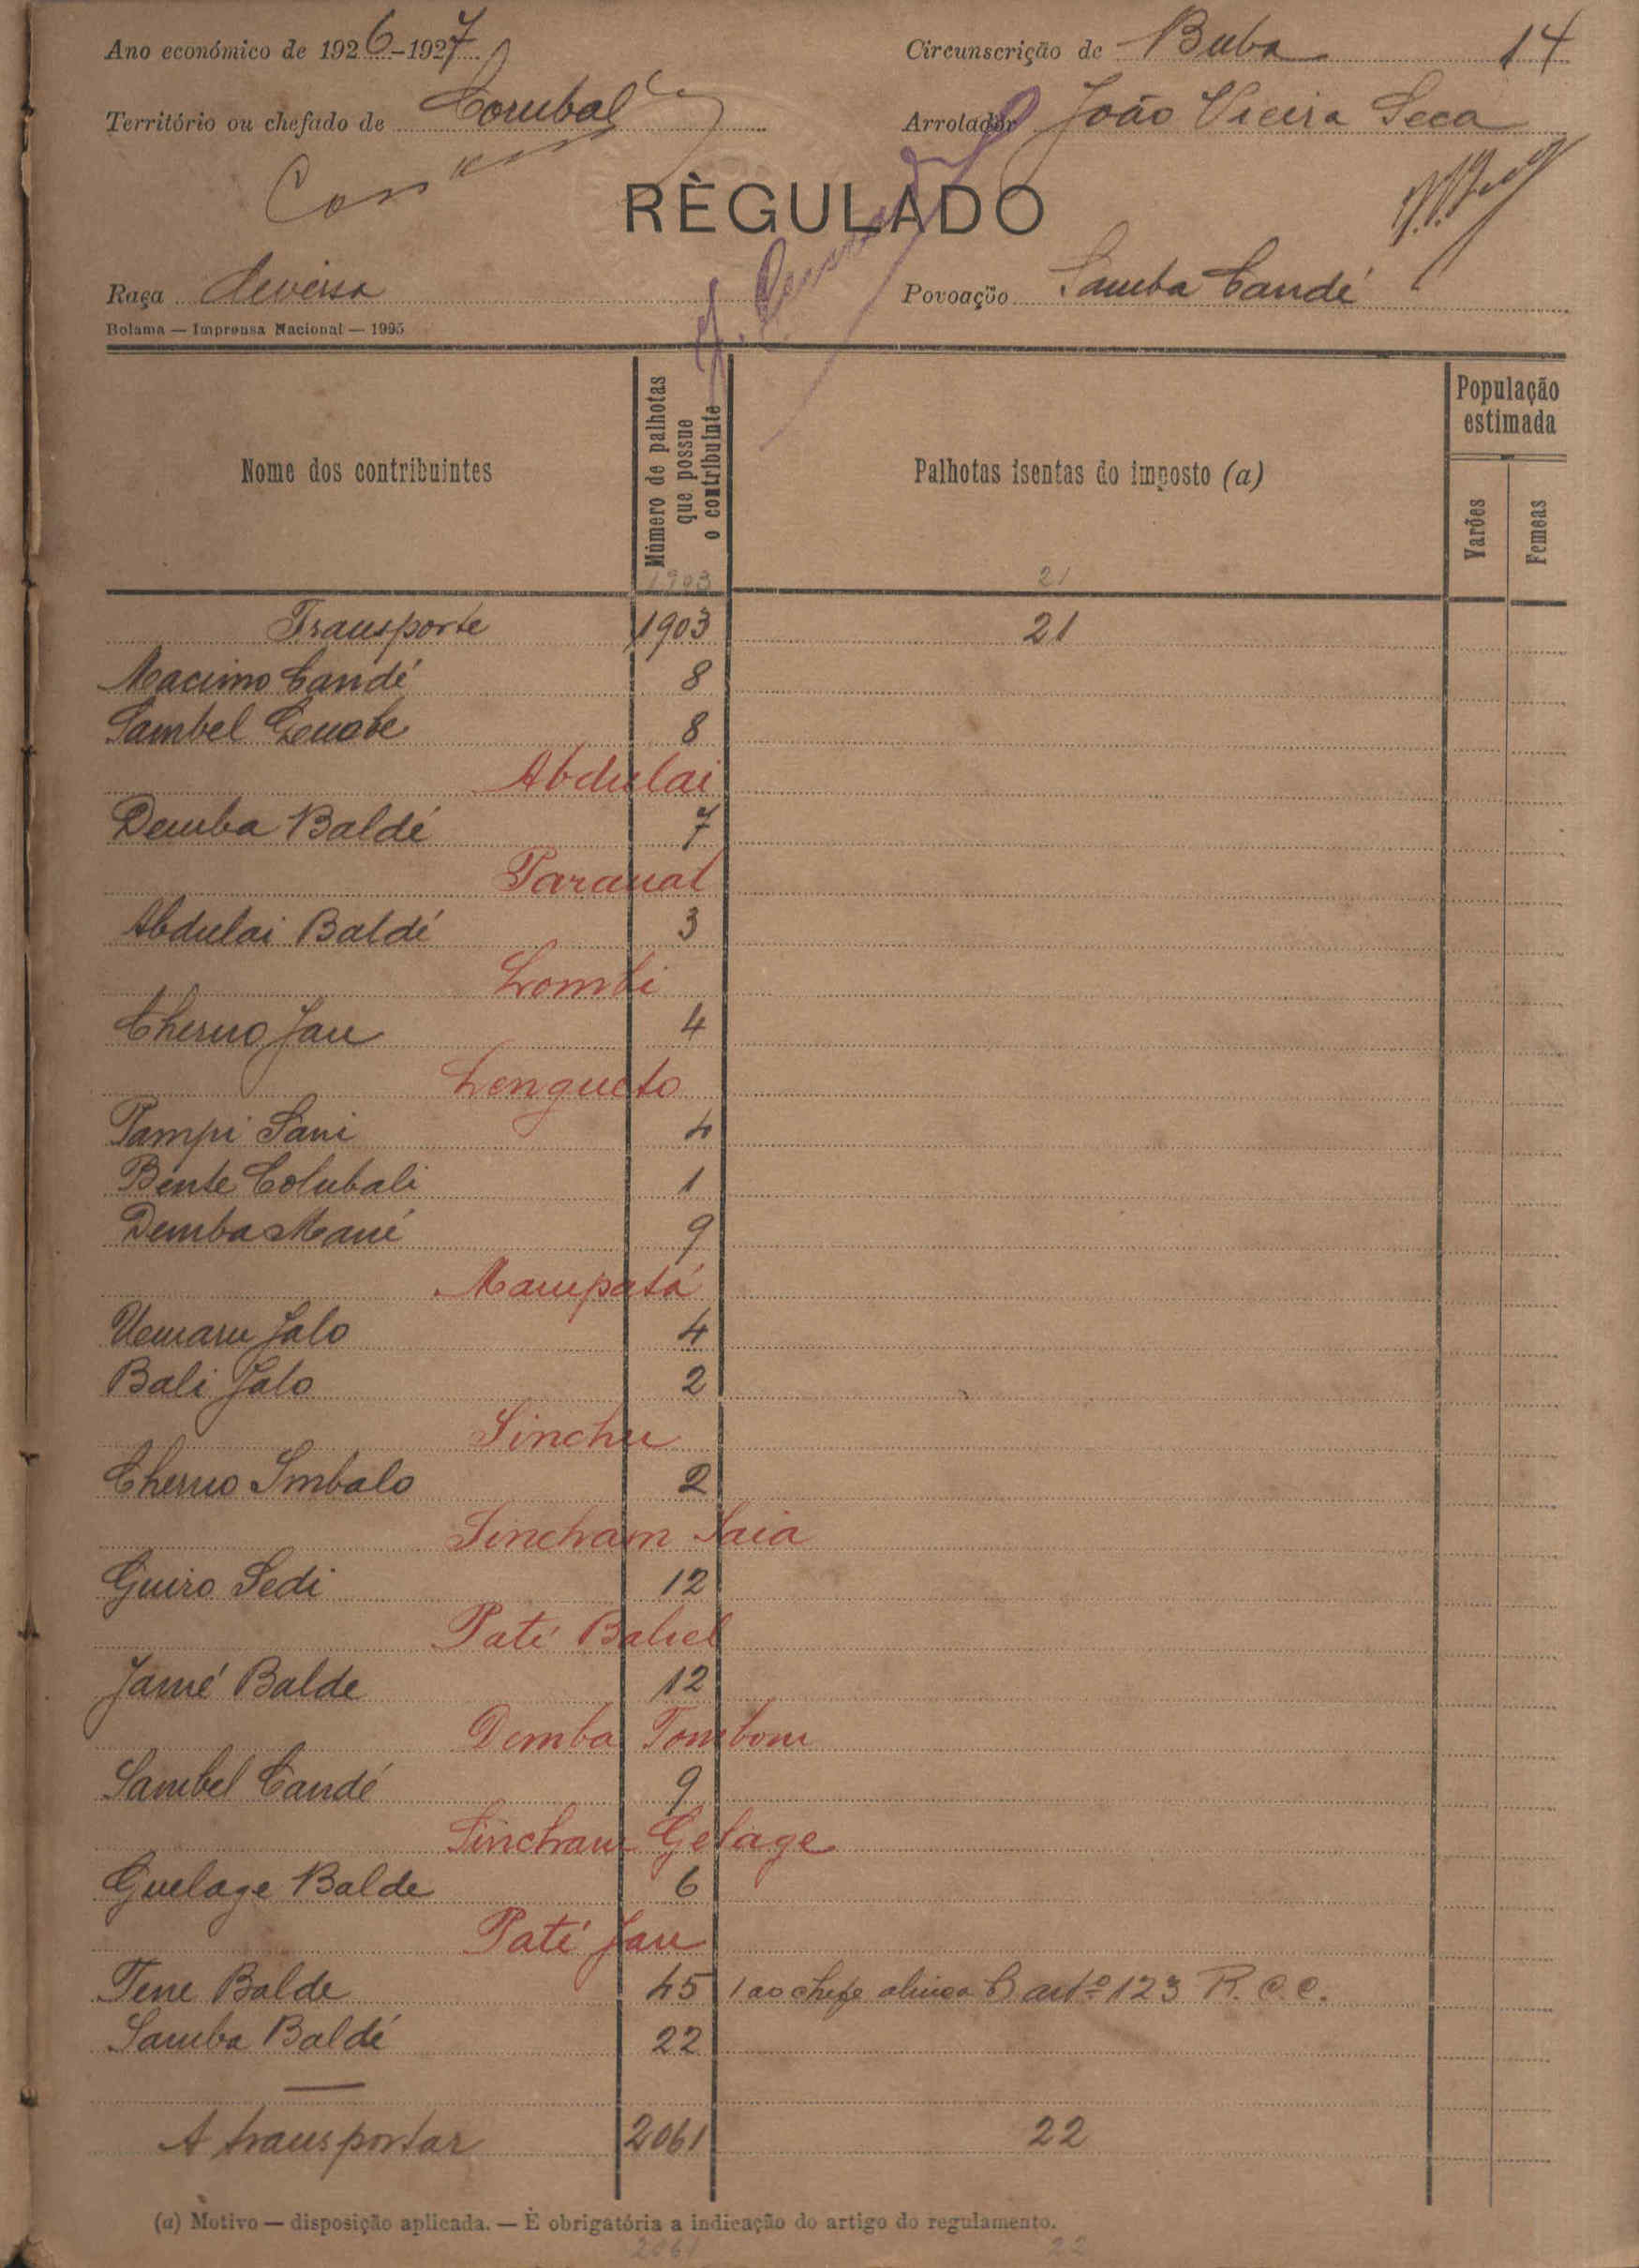 Ano económico de 1926-1927 Circunscrição de Buba 14
Território ou chefado de Corubal Arrolador João Vieira Seca
RÈGULADO
Raça diversa Povoação Samba Candé
Bolama — Imprensa Nacional — 1925
Nome dos contribuintes
Número de palhotas
que possue
o contribuinte
Palhotas isentas do imposto (a)
População
estimada
Varões
Femeas
1903 21
Transporte 1903 21
Macimo Candé 8
Sambel 8
Abdulai
Demba Baldé 7
Paranal
Abdulai Baldé 3
Lombi
Cherno Jau 4
Lengueto
Pampi Sani 4
Bente Colubali 1
Demba Mané 9
Mampatá
Uemaru Jalo 4
Bali Jalo 2
Sinchu
Cherno Imbalo 2
Sincham Saia
Guiro Sedi 12
Paté
Jamé Balde 12
Demba Tombom
Sambel Candé 9
Sincham Gelage
Guelage Balde 6
Paté Jau
Tene Balde 45 1 ao chefe alinea B artº 123 R. C. C.
Samba Baldé 22
A transportar 2061 22
(a) Motivo — disposição aplicada. — È obrigatória a indicação do artigo do regulamento.
2061 22